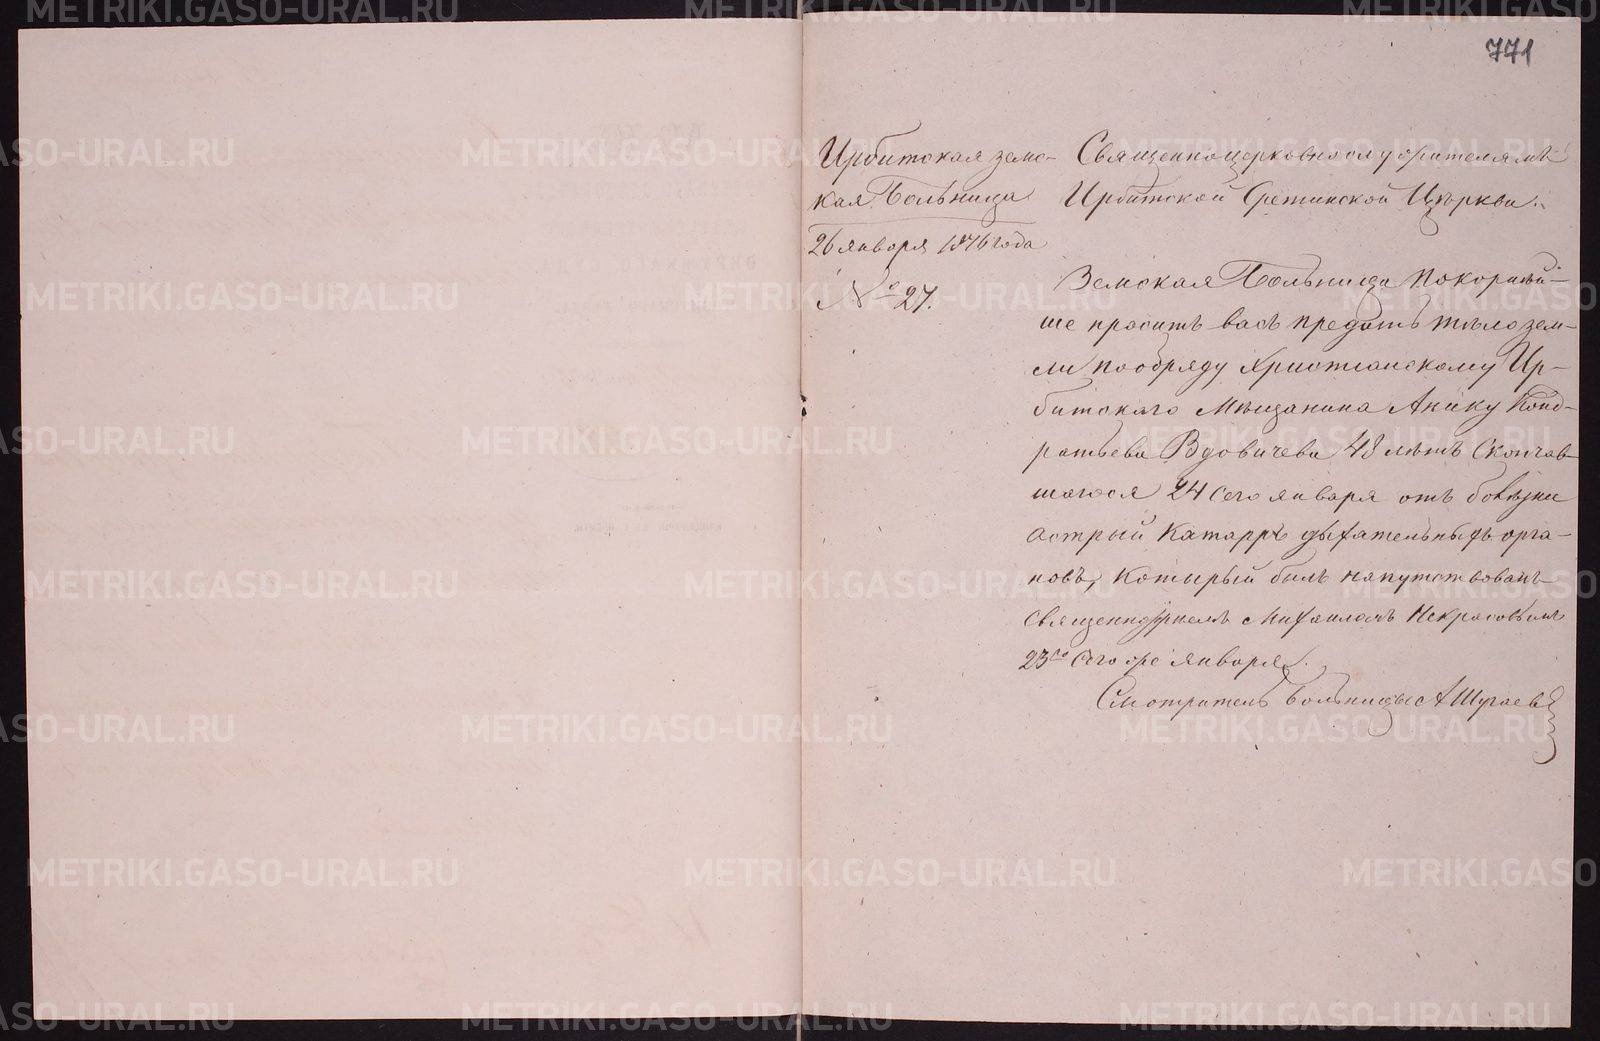 771
Ирбитская земс-
кая Больница
26 января 1876 года
№ 27.
Священноцерковнослужителямъ
Ирбитской Сретинской Цѣркви.
Земская Больница покорнѣй-
ше проситъ васъ предать тѣло зем-
ли по обряду Христианскому Ир-
битскаго Мѣщанина Анику Конд-
ратьева Вдовичева 48 лѣтъ Скончав-
шагося 24 сего января отъ болѣзни
астрый Катарръ дыхательныхъ орга-
новъ, Который былъ напутствованъ
священникомъ Михаиломъ Некрасовымъ
23го сего же января.
Смотритель Больницы А Шугаевъ
METRIKI.GASO-URAL.RU